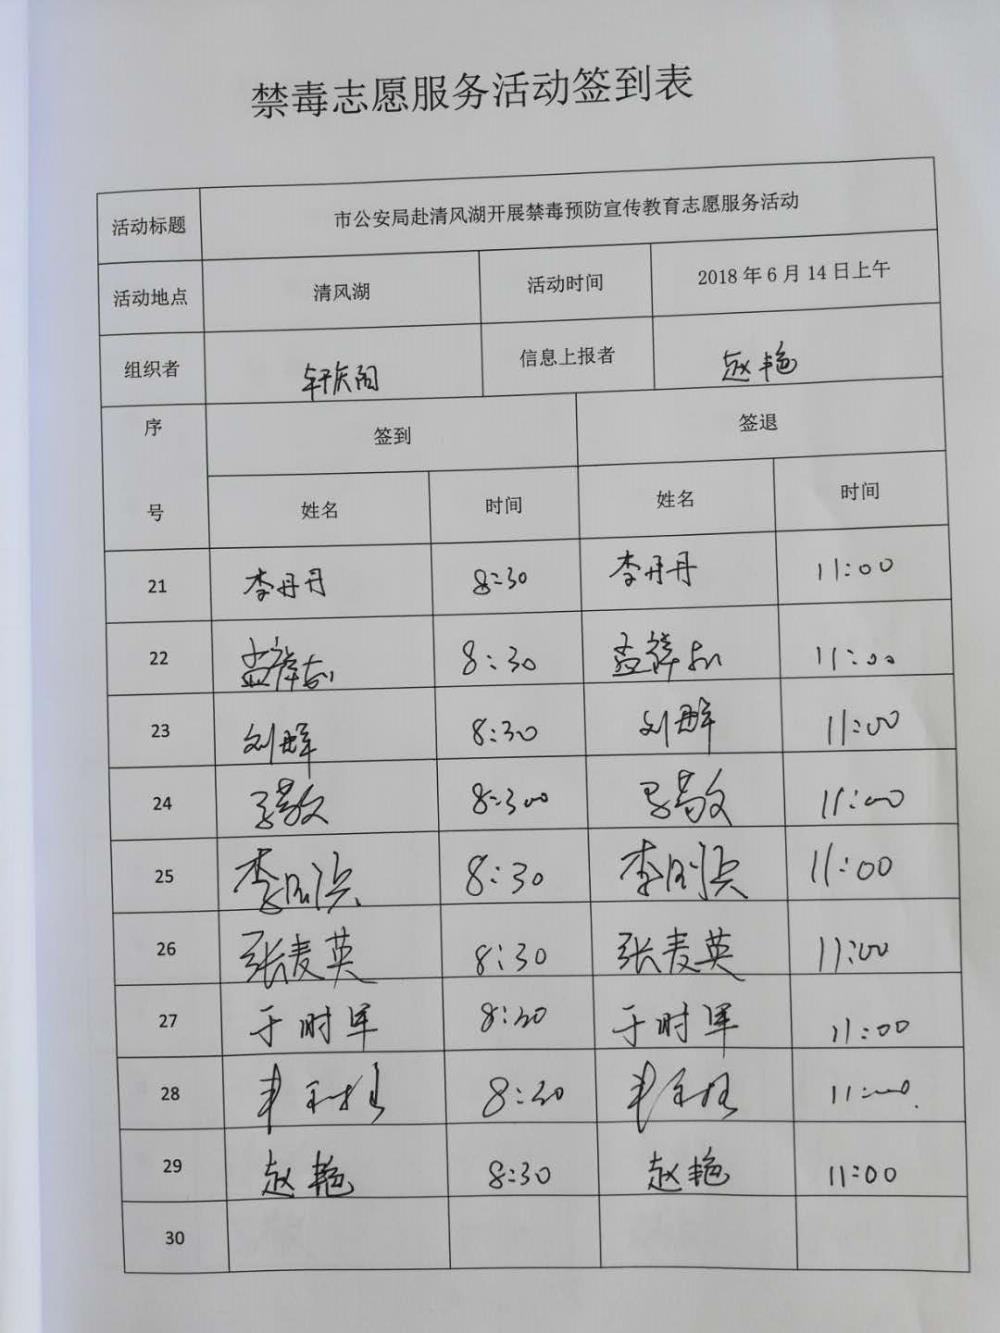 禁毒志愿服务活动签到表
活动标题 市公安局赴清风湖开展禁毒预防宣传教育志愿服务活动
活动地点 清风湖 活动时间 2018年6月14日上午
组织者 信息上报者 赵艳
序号 签到 签退
姓名 时间 姓名 时间
21 李丹丹 8:30 李丹丹 11:00
22 8:30 11:00
23 刘群 8:30 刘群 11:00
24 8:300 11:00
25 8:30 11:00
26 张麦英 8:30 张麦英 11:00
27 于时军 8:30 于时军 11:00
28 8:30 11:00
29 赵艳 8:30 赵艳 11:00
30